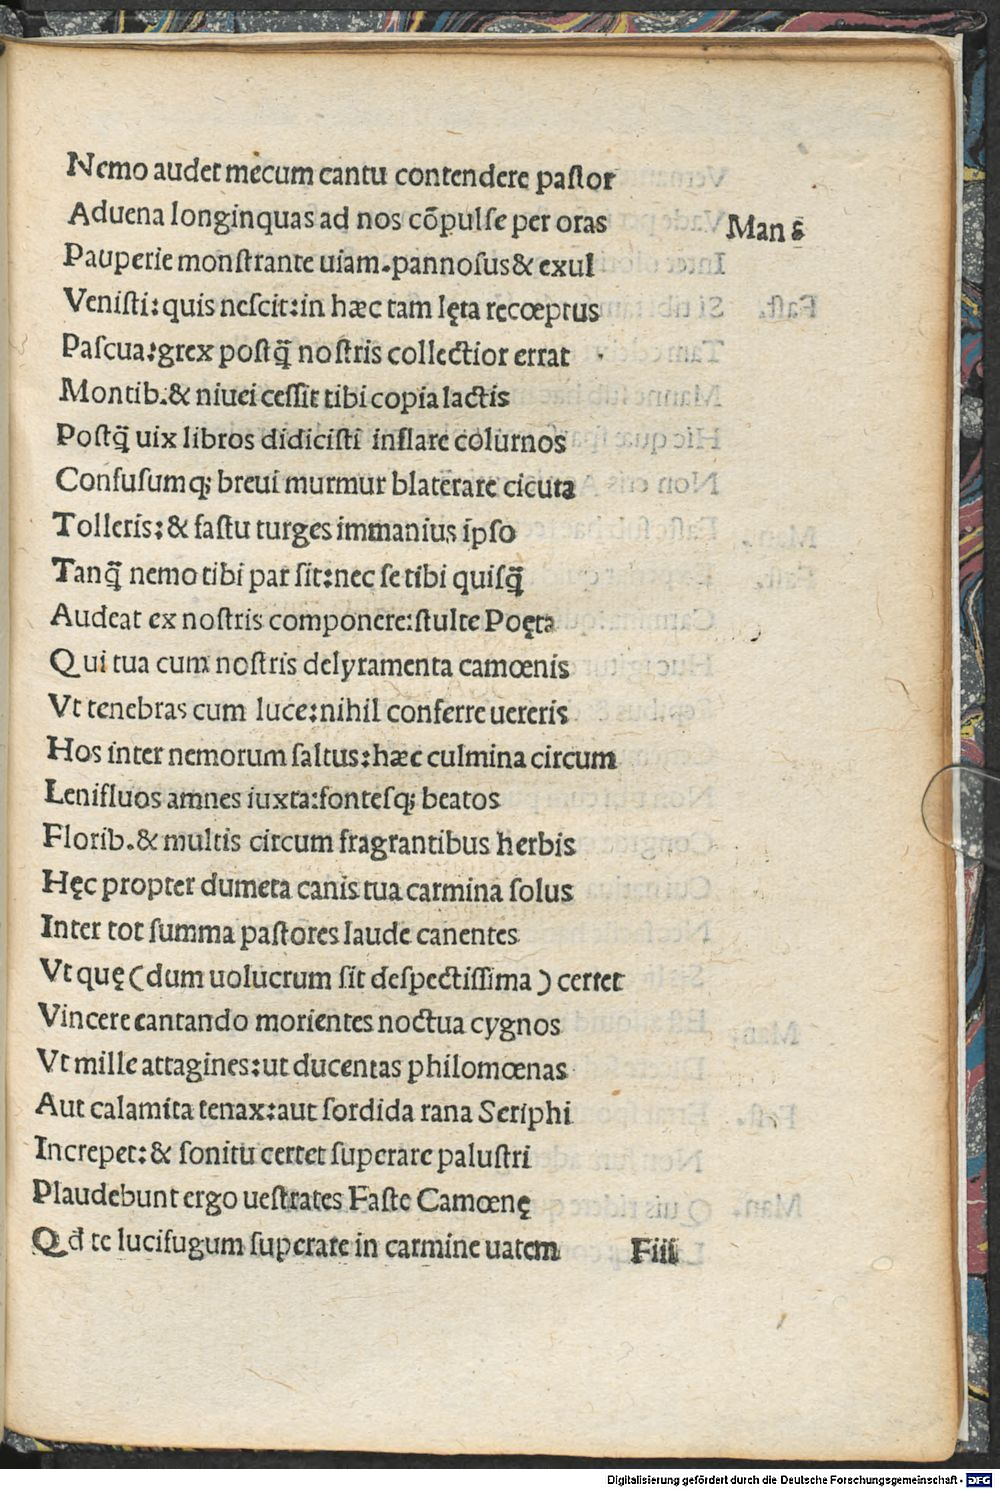 Nemo audet mecum cantu contendere paſtor
Aduena longinquas ad nos cōpulſe per oras Man
Pauperie monſtrante uiam.pannoſus& exul
Veniſti:quis neſcit:in hæc tam lęta recœptus
Paſcua:grex poſtq̄ noſtris collectior errat
Montib.& niuei ceſſit tibi copia lactis
Poſtq̄ uix libros didiciſti inflare colurnos
Confuſumq; breui murmur blaterare cicuta
Tolleris:& faſtu turges immanius ipſo
Tanq̄ nemo tibi par ſit:nec ſe tibi quiſq̄
Audeat ex noſtris componere:ſtulte Poęta
Qui tua cum noſtris delyramenta camœnis
Vt tenebras cum luce:nihil conferre uereris
Hos inter nemorum ſaltus:hæc culmina circum
Lenifluos amnes iuxta:fonteſq; beatos
Florib.& multis circum fragrantibus herbis
Hęc propter dumeta canis tua carmina ſolus
Inter tot ſumma paſtores laude canentes
Vt quę (dum uolucrum ſit deſpectiſſima) certet
Vincere cantando morientes noctua cygnos
Vt mille attagines:ut ducentas philomœnas
Aut calamita tenax:aut ſordida rana Seriphi
Increpet:& ſonitu certet ſuperare paluſtri
Plaudebunt ergo ueſtrates Faſte Camœnę
Qđ te lucifugum ſuperare in carmine uatem Fiii
Digitalisierung gefördert durch die Deutsche Forschungsgemeinschaft - DFG